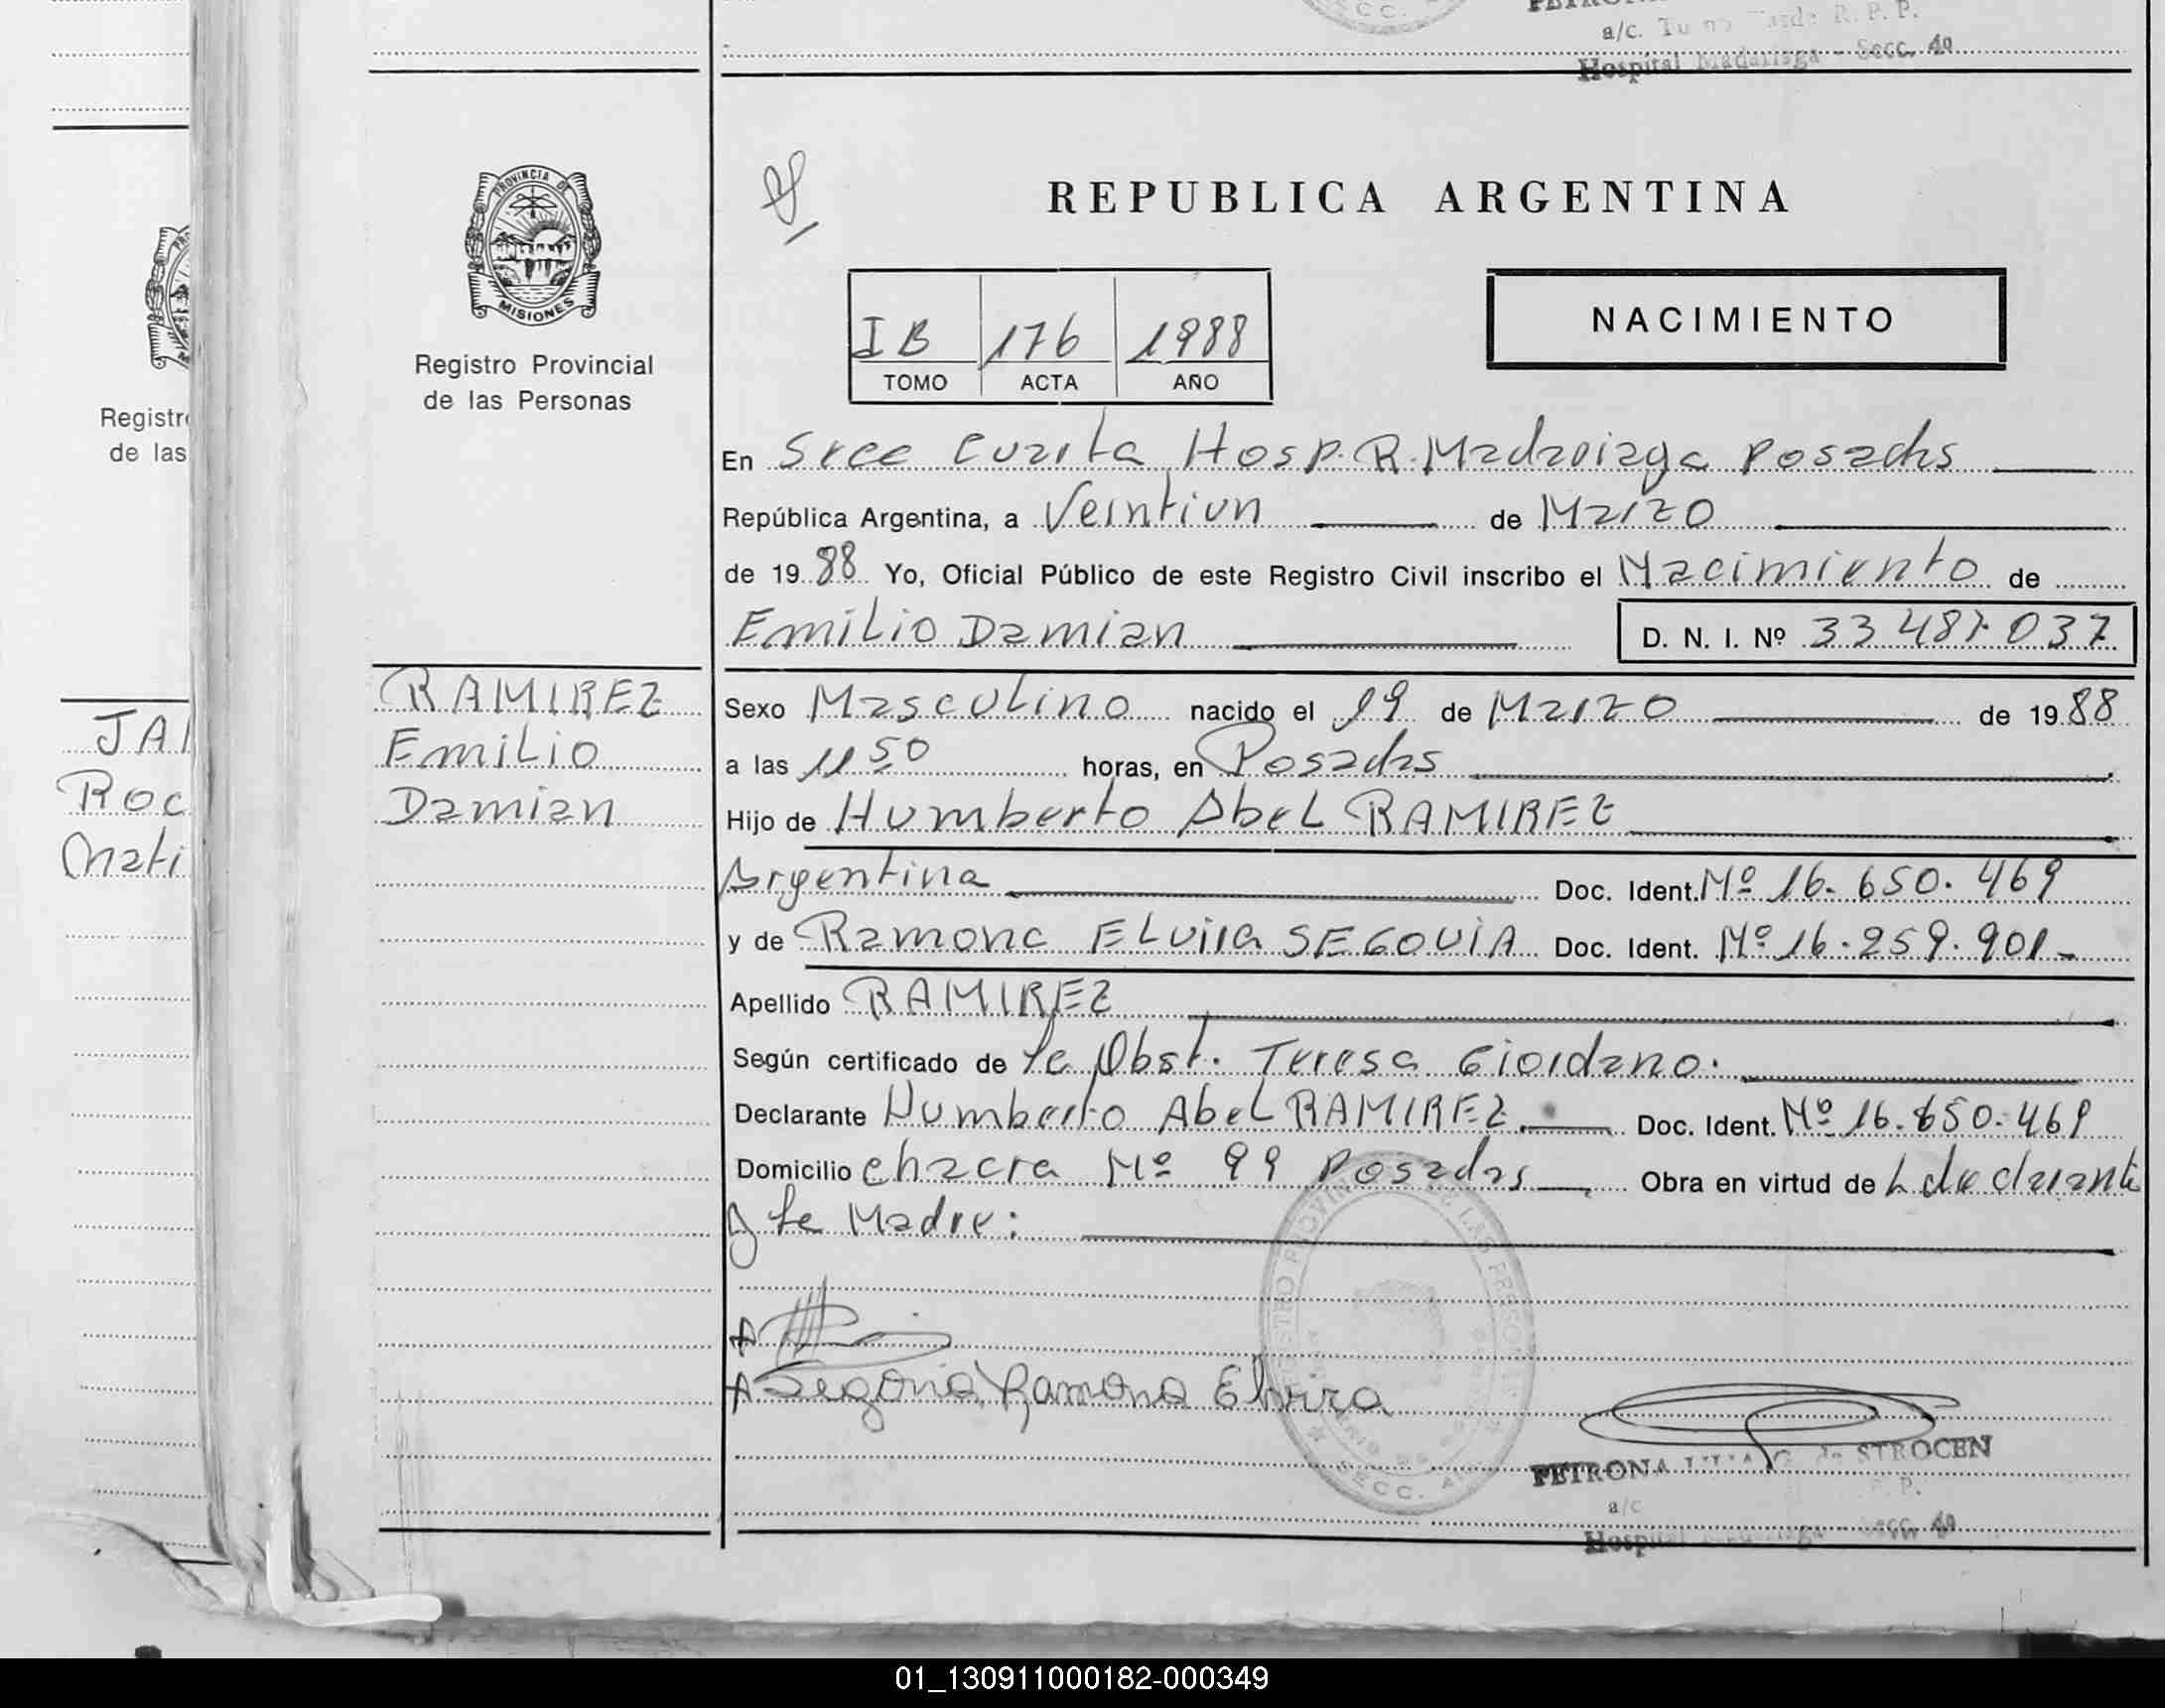 SECC.
a/c.
R. P. P.
Hospital Madariaga - Secc. 4a
PROVINCIA DE
MISIONES
Registro Provincial
de las Personas
REPUBLICA ARGENTINA
NACIMIENTO
I B 176 1988
TOMO ACTA AÑO
Registr
de las
En Secc Cuarta Hosp. R. Madariaga Posadas
República Argentina, a Veintiun de Marzo
de 19 88 Yo, Oficial Público de este Registro Civil inscribo el Nacimiento de
Emilio Damian D. N. I. Nº 33 487.037
RAMIREZ
Emilio
Damian
JA
Roc
Mati
Sexo Masculino nacido el 19 de Marzo de 19 88
a las 11 50 horas, en Posadas
Hijo de Humberto Abel RAMIREZ
Argentina Doc. Ident. Nº 16.650.469
y de Ramona Elvira SEGOVIA Doc. Ident. Nº 16.259.901-
Apellido RAMIREZ
Según certificado de la Obst. Teresa Giordano.
Declarante Humberto Abel RAMIREZ. Doc. Ident. Nº 16.650.469
Domicilio Chacra Nº 99 Posadas Obra en virtud de L declarante
y la Madre:
Segovia Ramona Elvira
SECC.
PETRONA G. de STROCEN
a/c
Secc. 4a
01_130911000182-000349